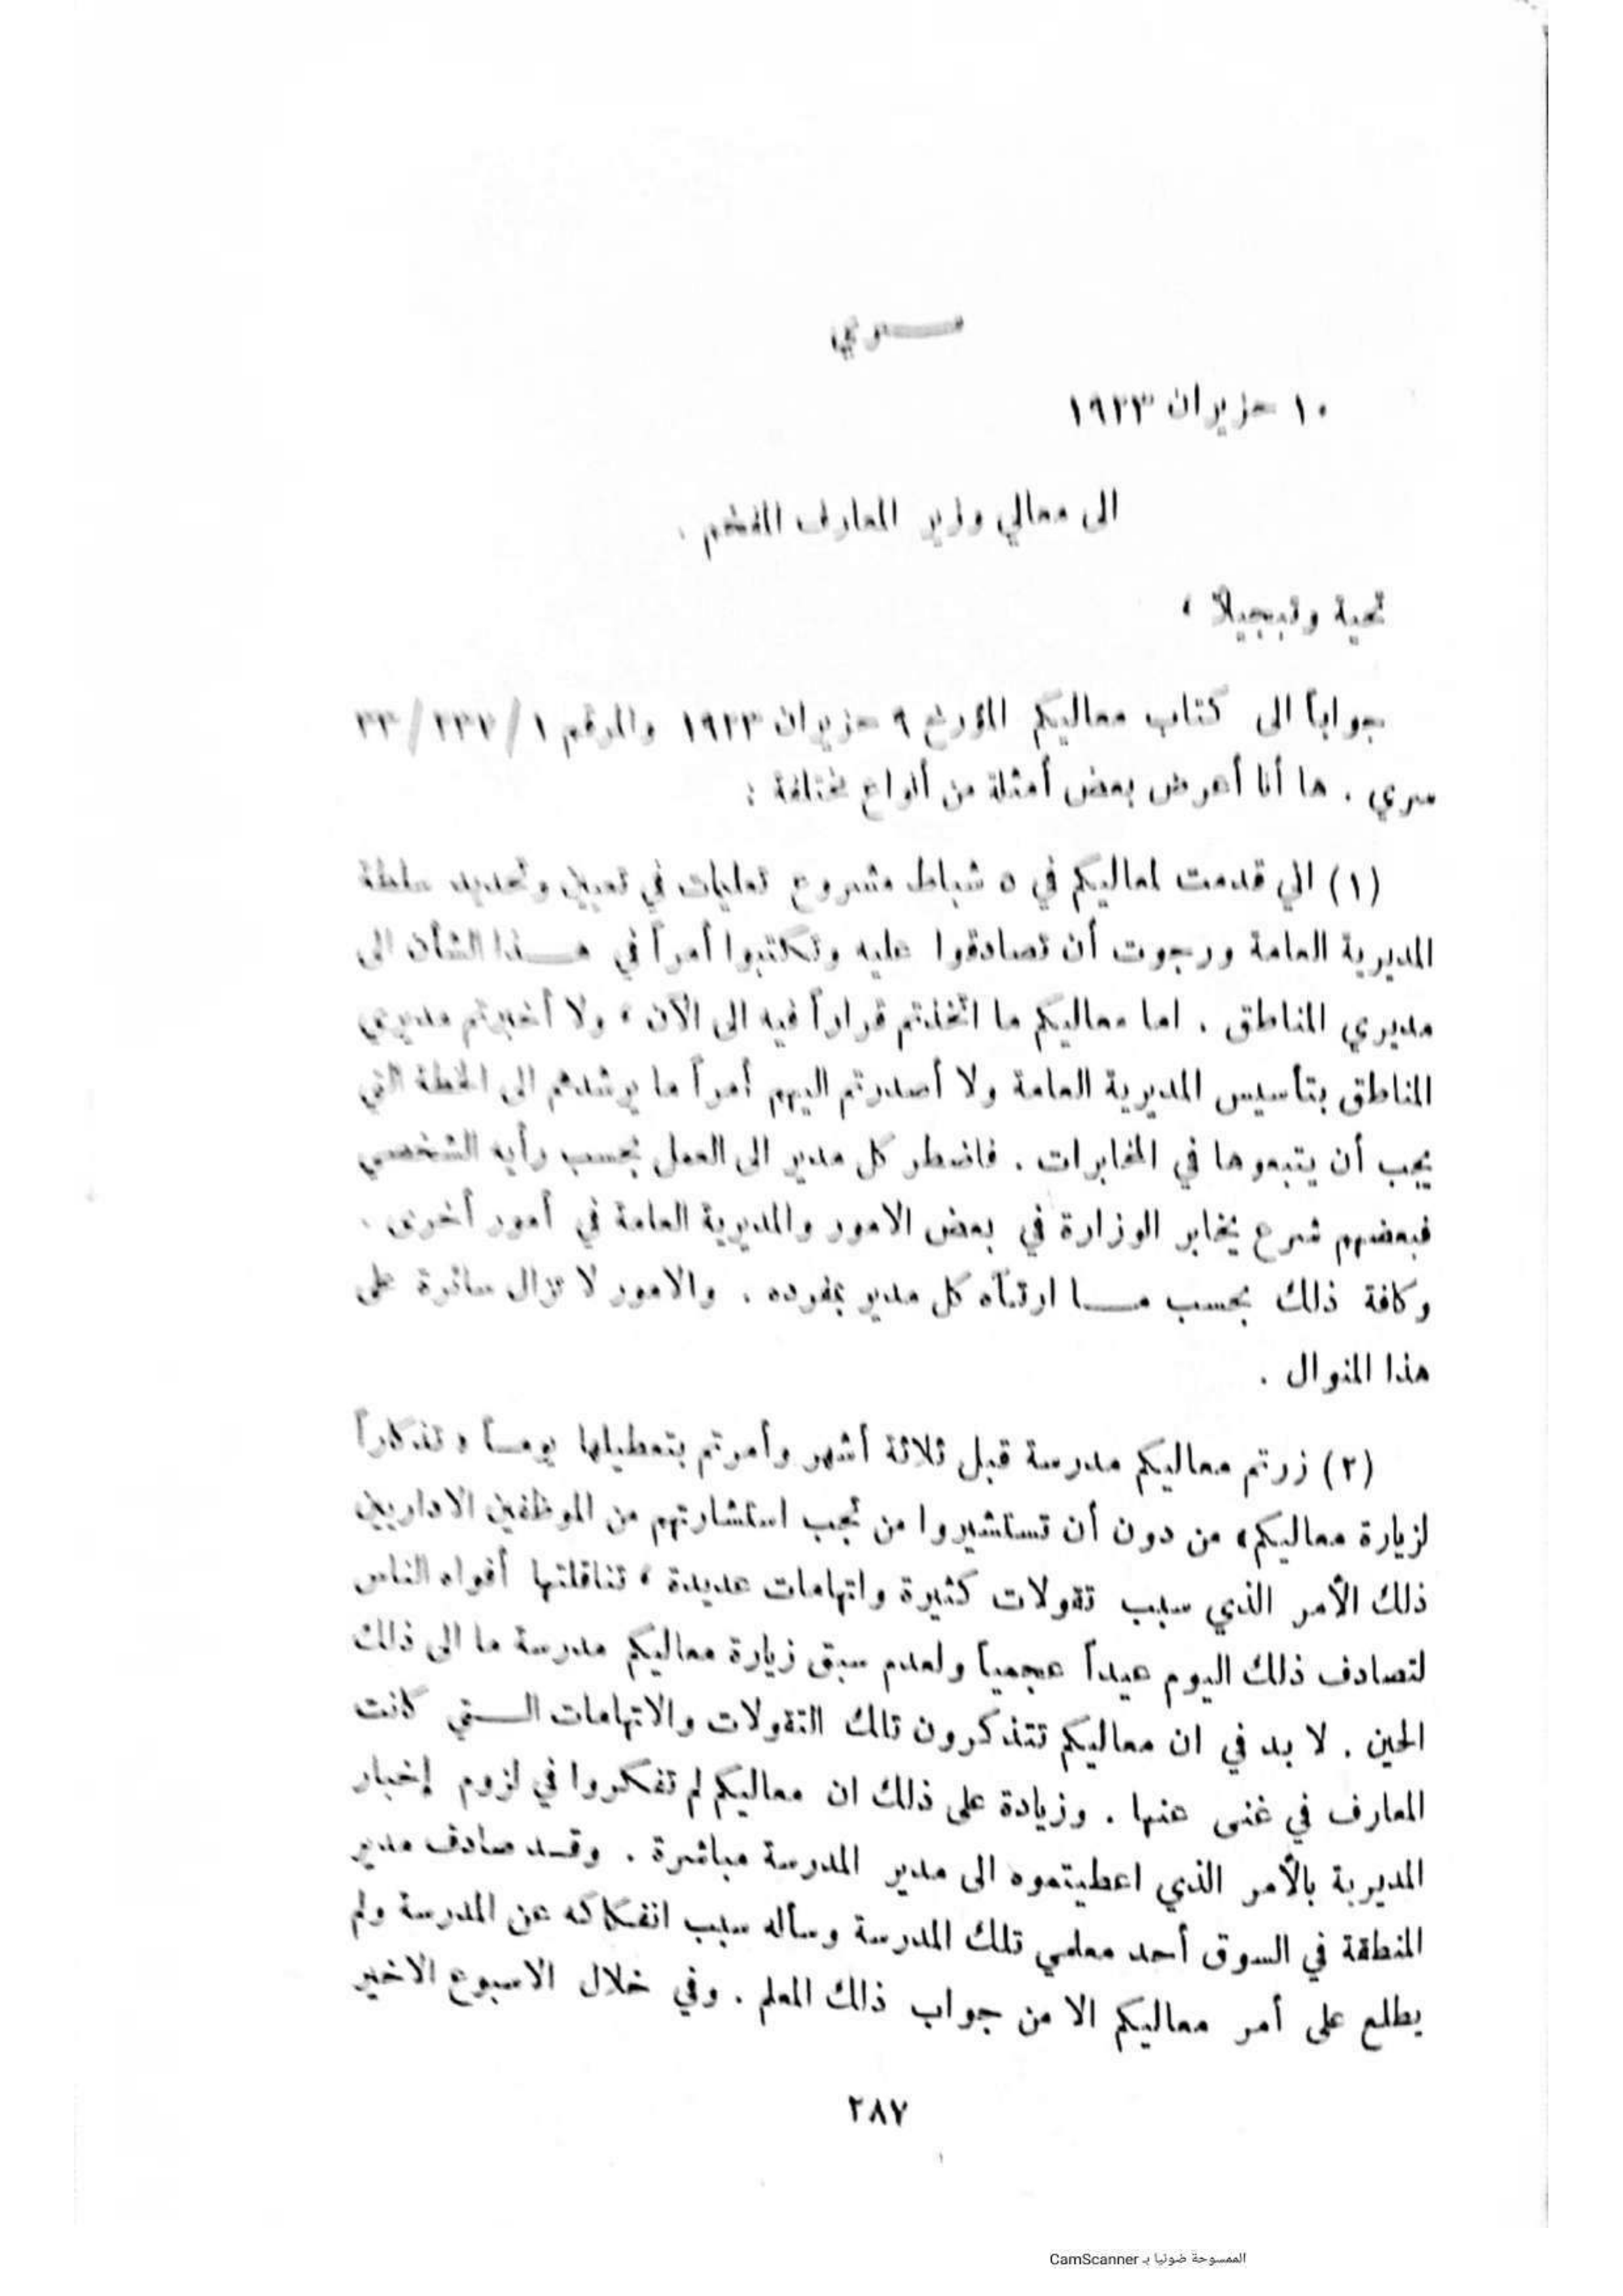 ســـري
١٠ حزيران ١٩٢٣
الى معالي وزير المعارف المفخم .
تحية وتبجيلاً ،
جواباً الى كتاب معاليكم المؤرخ ٩ حزيران ١٩٢٣ والمرقم ١/
سري . ها أنا أعرض بعض أمثلة من أنواع مختلفة :
(١) اني قدمت لمعاليكم في ٥ شباط مشروع تعليمات في تعيين وتحديد سلطة
المديرية العامة ورجوت أن تصادقوا عليه وتكتبوا أمراً في هـــذا الشأن الى
مديري المناطق . اما معاليكم ما اتخذتم قراراً فيه الى الآن ، ولا أخبرتم مديري
المناطق بتأسيس المديرية العامة ولا أصدرتم اليهم أمراً ما يرشدهم الى الخطة التي
يجب أن يتبعوها في المخابرات . فاضطر كل مدير الى العمل بحسب رأيه الشخصي
فبعضهم شرع يخابر الوزارة في بعض الامور والمديرية العامة في أمور أخرى .
وكافة ذلك بحسب مـــا ارتآه كل مدير بمفرده . والامور لا تزال سائرة على
هذا المنوال .
(٢) زرتم معاليكم مدرسة قبل ثلاثة أشهر وأمرتم بتعطيلها يومـاً « تذكاراً
لزيارة معاليكم » من دون أن تستشيروا من تجب استشارتهم من الموظفين الاداريين
ذلك الأمر الذي سبب تقولات كثيرة واتهامات عديدة ، تناقلتها أفواه الناس
لتصادف ذلك اليوم عيداً عجمياً ولعدم سبق زيارة معاليكم مدرسة ما الى ذلك
الحين . لا بد في ان معاليكم تتذكرون تلك التقولات والاتهامات الـــتي كانت
المعارف في غنى عنها . وزيادة على ذلك ان معاليكم لم تفكروا في لزوم إخبار
المديرية بالأمر الذي اعطيتموه الى مدير المدرسة مباشرة . وقـد صادف مدير
المنطقة في السوق أحد معلمي تلك المدرسة وسأله سبب انفكاكه عن المدرسة ولم
يطلع على أمر معاليكم الا من جواب ذلك المعلم . وفي خلال الاسبوع الاخير
٢٨٧
الممسوحة ضوئيا بـ CamScanner